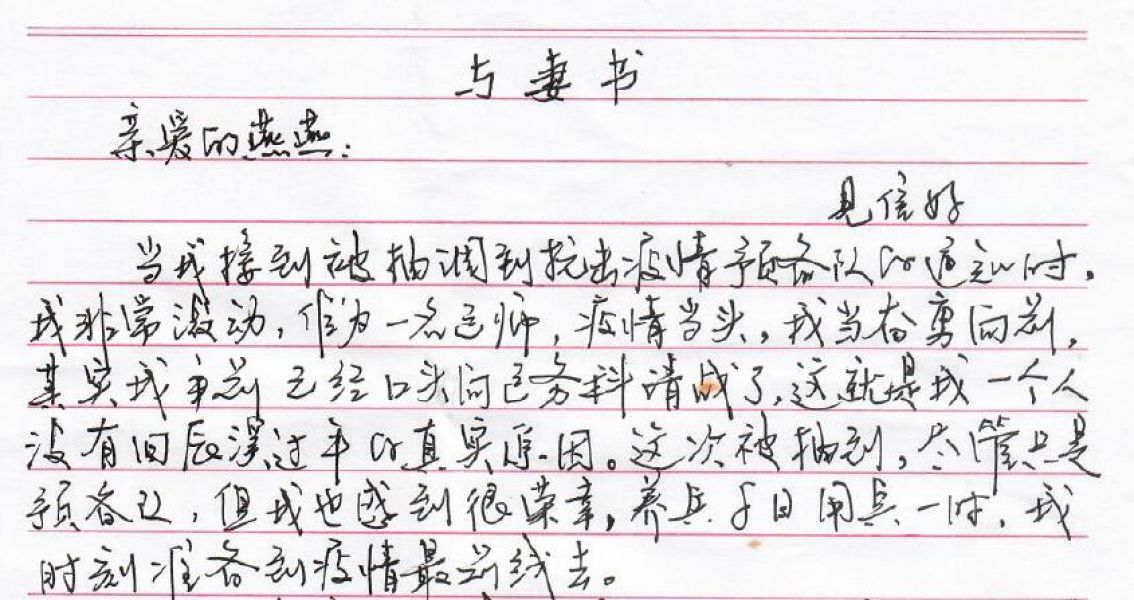 与妻书
亲爱的燕燕：
见信好
当我接到被抽调到抗击疫情预备队的通知时，
我非常激动，作为一名医师，疫情当头，我当奋勇向前，
其实我年前已经口头向医务科请战了，这就是我一个人
没有回辰溪过年的真实原因。这次被抽到，尽管只是
预备队，但我也感到很荣幸，养兵千日用兵一时，我
时刻准备到疫情最前线去。